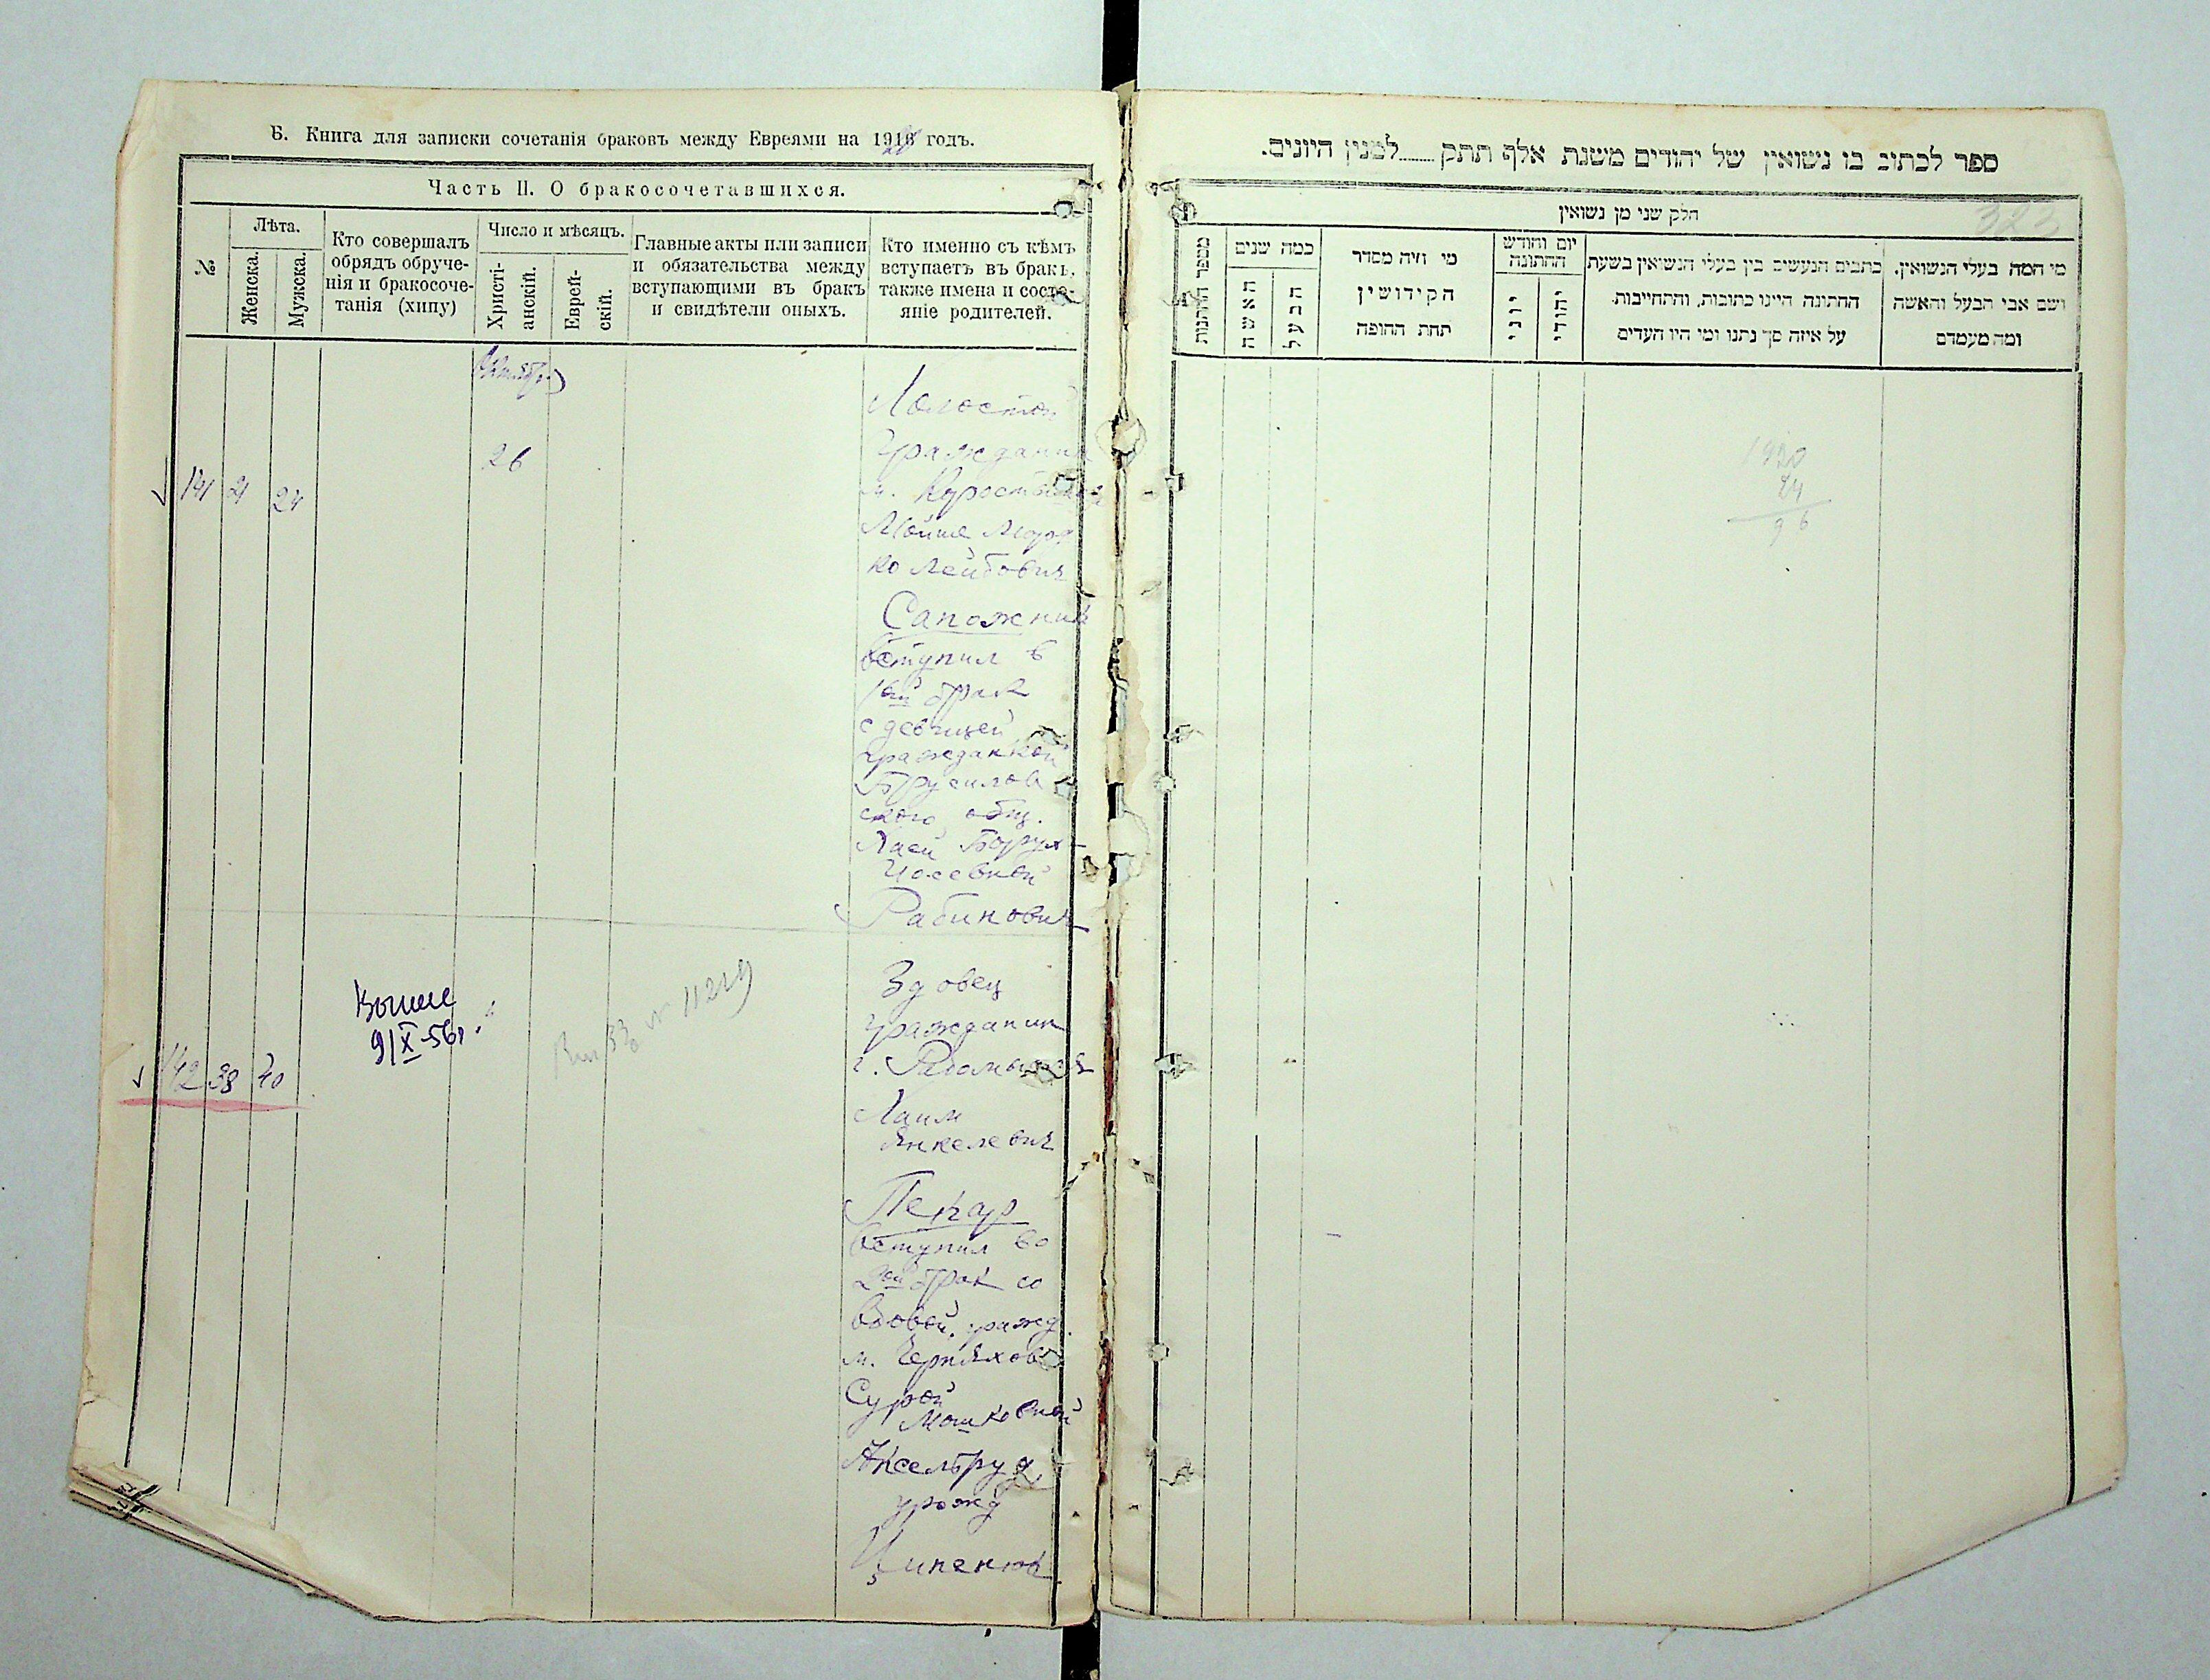 Б. Книга для записки сочетанія браковъ между Евреями на 1920 годъ.
Часть II. О бракосочетавшихся.
№
Лѣта.
Женска.
Мужска.
Кто совершалъ
обрядъ обруче-
нія и бракосоче-
танія (хипу)
Число и мѣсяцъ.
Христі-
анскій.
Еврей-
скій.
Главные акты или записи
и обязательства между
вступающими въ бракъ
и свидѣтели оныхъ.
Кто именно съ кѣмъ
вступаетъ въ бракъ,
также имена и состо-
яніе родителей.
Октябрь
26
141 21 24
Холостой
Гражданин
м. Коростышев
Мойше Морд
ко Лейбович
Сапожник
вступил в
1ый брак
с девицей
гражданкой
Брусилов
ского общ.
Хаей Борух-
Иосевной
Рабинович
142 38 40
Выше
9/X-56г.
№ 11219
Вдовец
гражданин
г. Радомысля
Хаим
Янкелевич
Пекар
вступил во
2ой брак со
вдовой, гражд.
м. Черняхов
Сурой
Мошковной
Аксельруд,
урожд
Ципенюк
ספר לכתוב בו נשואין של יהודים משנת אלף תתק........למנין היונים.
323
חלק שני מן נשואין
מספר החתנות
כמה שנים
האשה
הבעל
מי היה מסדר
הקידושין
תחת החופה
יום וחודש
החתונה
יוני
יהודי
כתבים הנעשים בין בעלי הנשואין בשעת
החתונה היינו כתובות, והתחייבות
על איזה סך נתנו ומי היו העדים
מי המה בעלי הנשואין,
ושם אבי הבעל והאשה
ומה מעמדם
1920
24
96